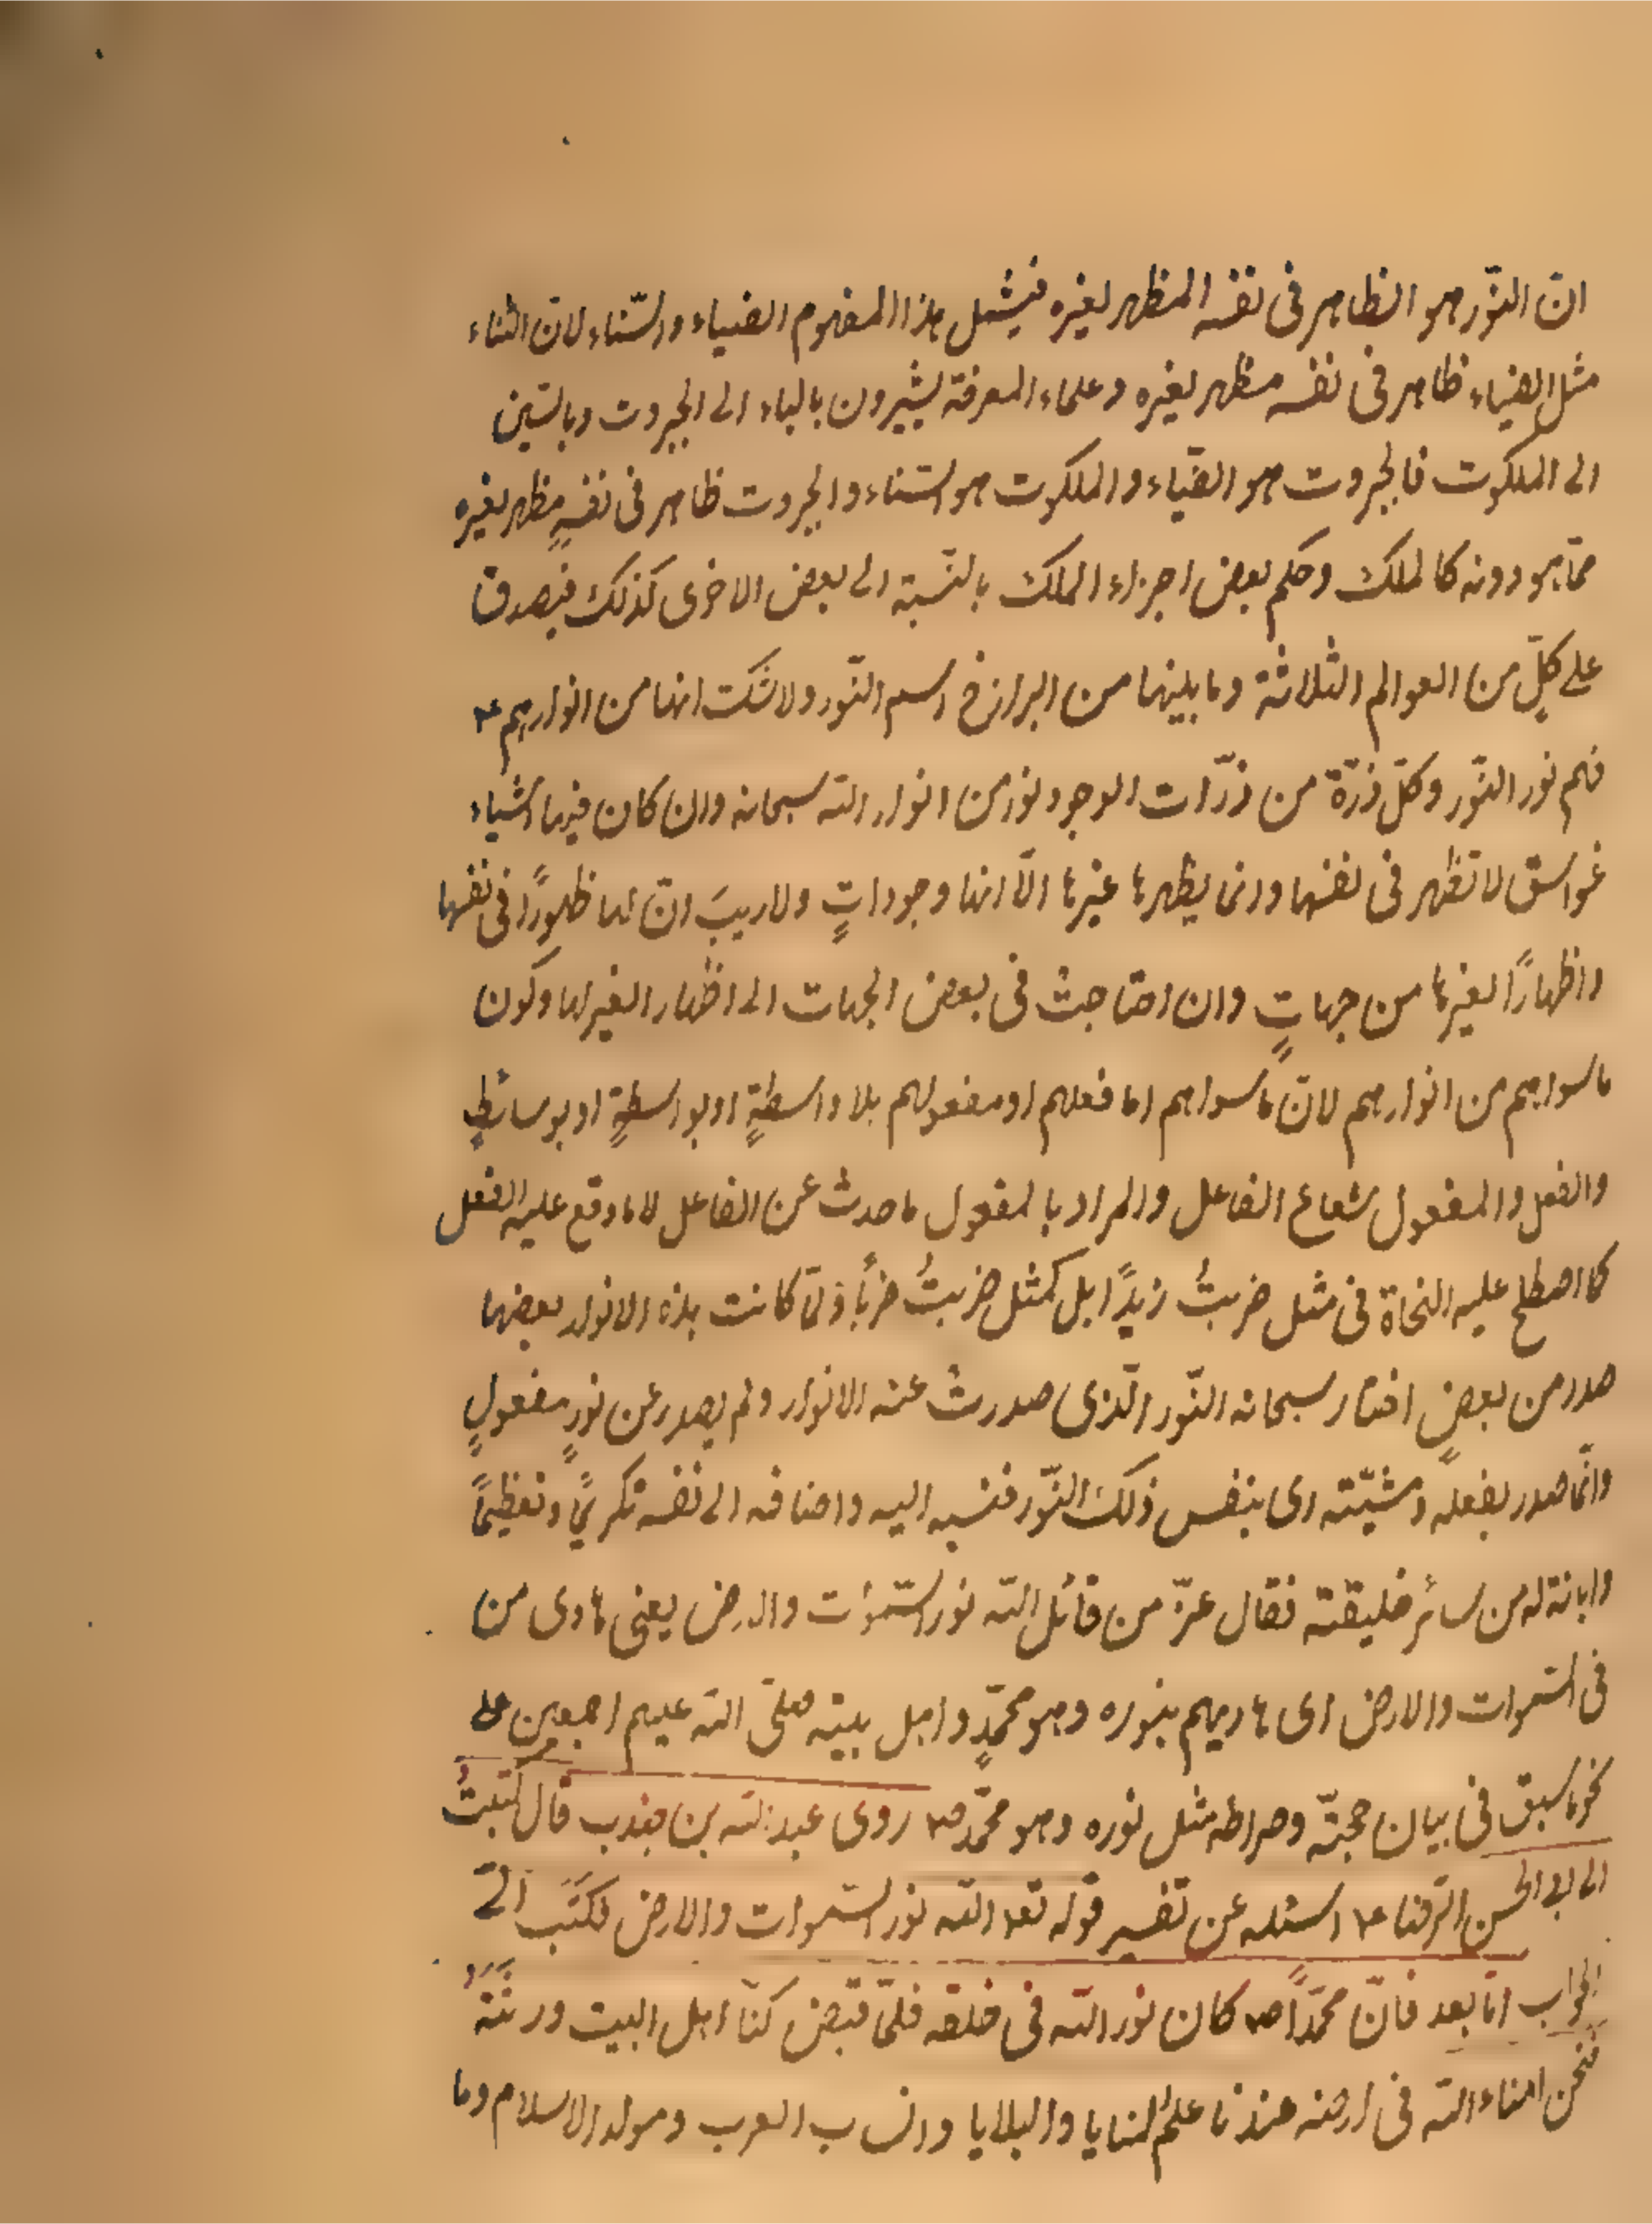 انّ النّور هو الظاهر فى نفسه المظهر لغيره فيشمل هذا المفهوم الضياء والسّناء لانّ الثناء
مثل الضياء ظاهر فى نفسه مظهر لغيره وعلماء المعرفة يشيرون بالباء الى الجبروت وبالسّين
الى الملكوت فالجبروت هو الضّياء والملكوت هو السّناء والجبروت ظاهر فى نفسهٍ مظهر لغيره
ممّا هو دونه كالملك وحكم بعض اجزاء الملك بالنّسبة الى بعض الاخرى كذلك فيصدق
على كلّ من العوالم الثلاثة وما بينها من البرازخ اسم النّور ولا شكّ انها من انوارهم ع
فهم نور النّور وكلّ ذرّة من ذرّات الوجود نور من انوار اللّه سبحانه وان كان فيها اشياء
غواسق لا تظهر فى نفسها وانما يظهرها غيرها الّا انها وجوداتٍ ولا ريبَ انّ لها ظهورًا فى نفسها
واظهارًا لغيرها من جهاتٍ وان احتاجت فى بعض الجهات الى اظهار الغير لها وكون
ما سواهم من انوارهم لانّ ما سواهم اما فعلهم او مفعولهم بلا واسطةٍ او بواسطةٍ او بوسائطٍ
والفعل والمفعول شعاع الفاعل والمراد بالمفعول ما حدث عن الفاعل لا ما وقع عليه الفعل
كما اصطلح عليه النحاة فى مثل ضربتُ زيدًا بل كمثل ضربتُ ضربًا ولمّا كانت هذه الانوار بعضها
صدر من بعضٍ اختار سبحانه النّور الّذى صدرت عنه الانوار ولم يصدر عن نورٍ مفعولٍ
وانّما صدر بفعله ومشيّته اى بنفس ذلك النّور فنسبه اليه واضافه الى نفسه تكريمًا وتعظيمًا
وابانة له من سائر خليقته فقال عزّ من قائل اللّه نور السّموات والارض يعنى هادى من
فى السّموات والارض اى هاديهم بنوره وهو محمّدٍ واهل بيته صلّى اللّه عليهم اجمعين على
نحو ما سبق فى بيان حجّته وصراطه مثل نوره وهو محمّد ص روى عبد اللّه بن جندب قال كتبتُ
الى ابى الحسن الرّضا ع اسئله عن تفسير قوله تعـ اللّه نور السّموات والارض فكتَبَ الىّ
الجواب امّا بعد فانّ محمّدًا ص كان نور اللّه فى خلقه فلمّا قبض كنّا اهل البيت ورثَتَهُ
فنحن امناء اللّه فى ارضه عندنا علمُ المنايا والبلايا وانساب العرب ومولد الاسلام وما